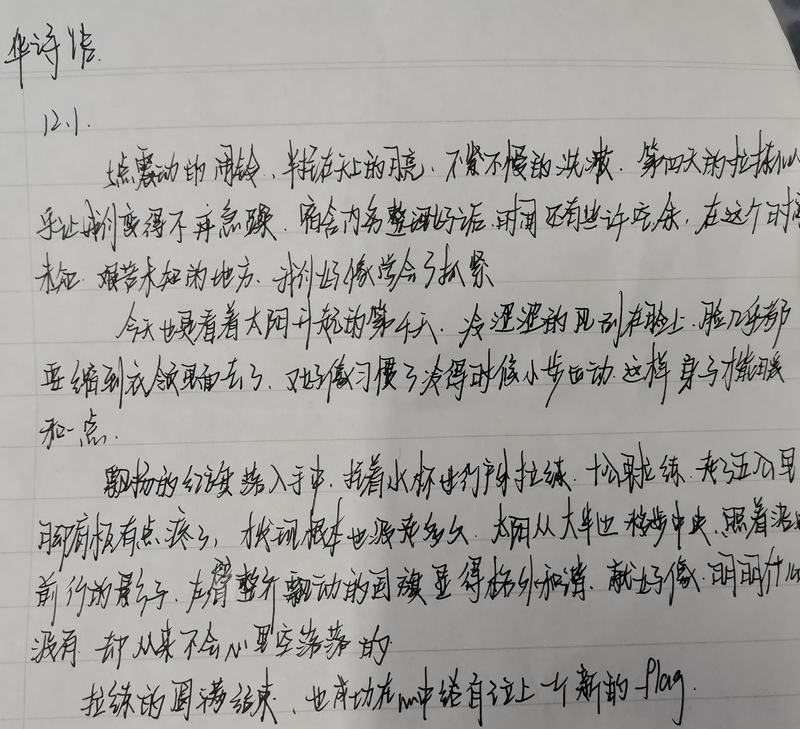 华诗浩.
12.1.
5点震动的闹铃,半挂在天上的月亮,不紧不慢的洗漱.第四天的拉练似
乎让我们变得不再急躁.宿舍内务整理好后,时间还有些许吃余,在这个时间
未知 艰苦未知的地方.我们好像学会了抓紧
今天也是看着太阳升起的第4天,冷涩涩的风刮在脸上.脸几乎都
要缩到衣领里面去了,又好像习惯了冷得时候小步启动 这样身子才能暖
和一点.
飘扬的红旗落入手中.拴着水杯进行户外拉练.十公里拉练 走了五公里
脚底板有点疼了,才发现根本也没走多久.太阳从大半边移步中央.照着
前行的影子.左臂整齐飘动的国旗显得格外和谐.就好像.明明什么
没有 却从来不会心里空落落的
拉练的圆满结束,也成功在心中给自己立上一个新的flag.